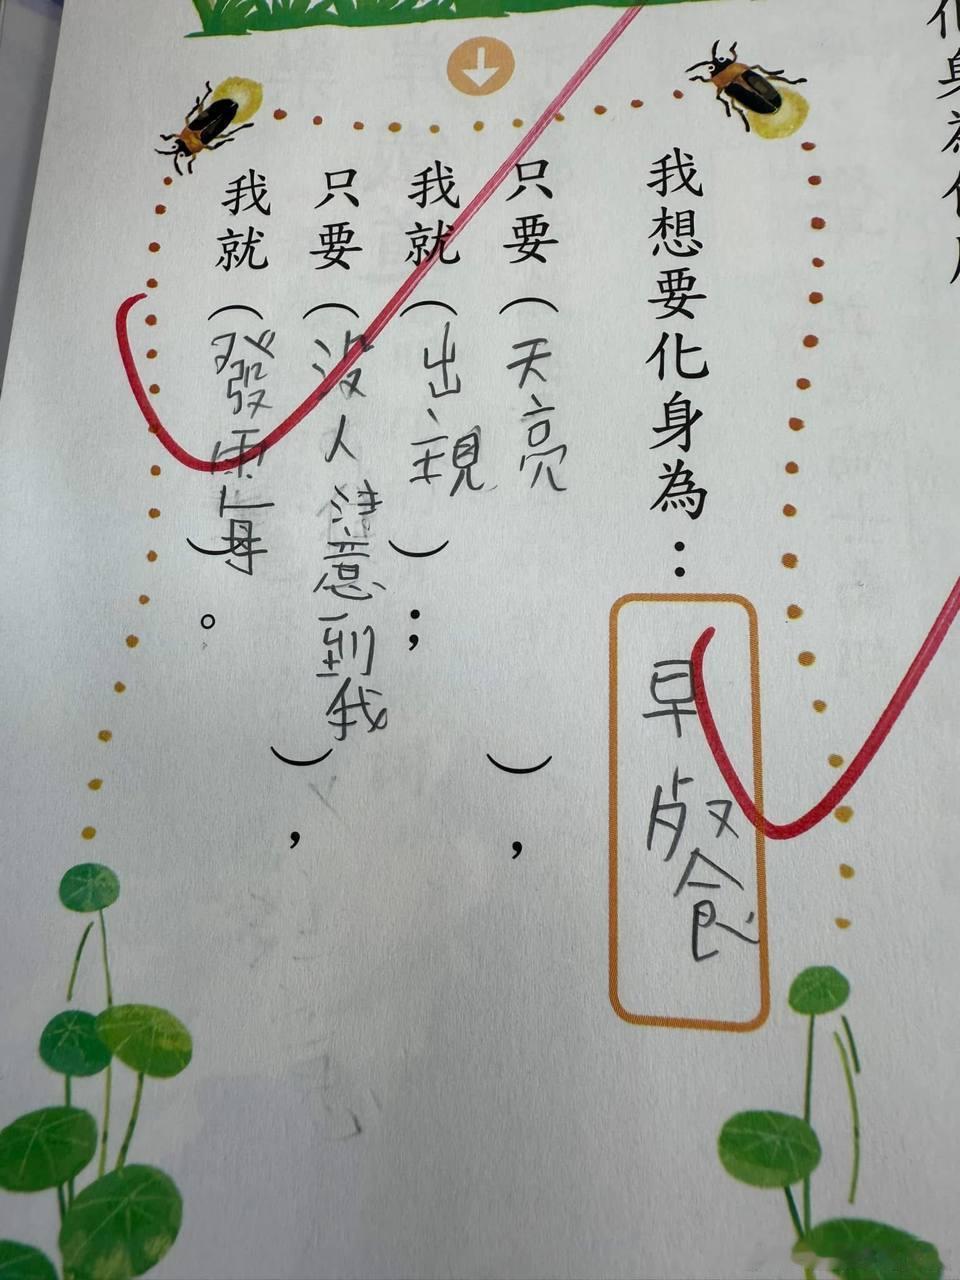 我想要化身為：早餐
只要（天亮），
我就（出現）；
只要（沒人注意到我），
我就（發霉）。